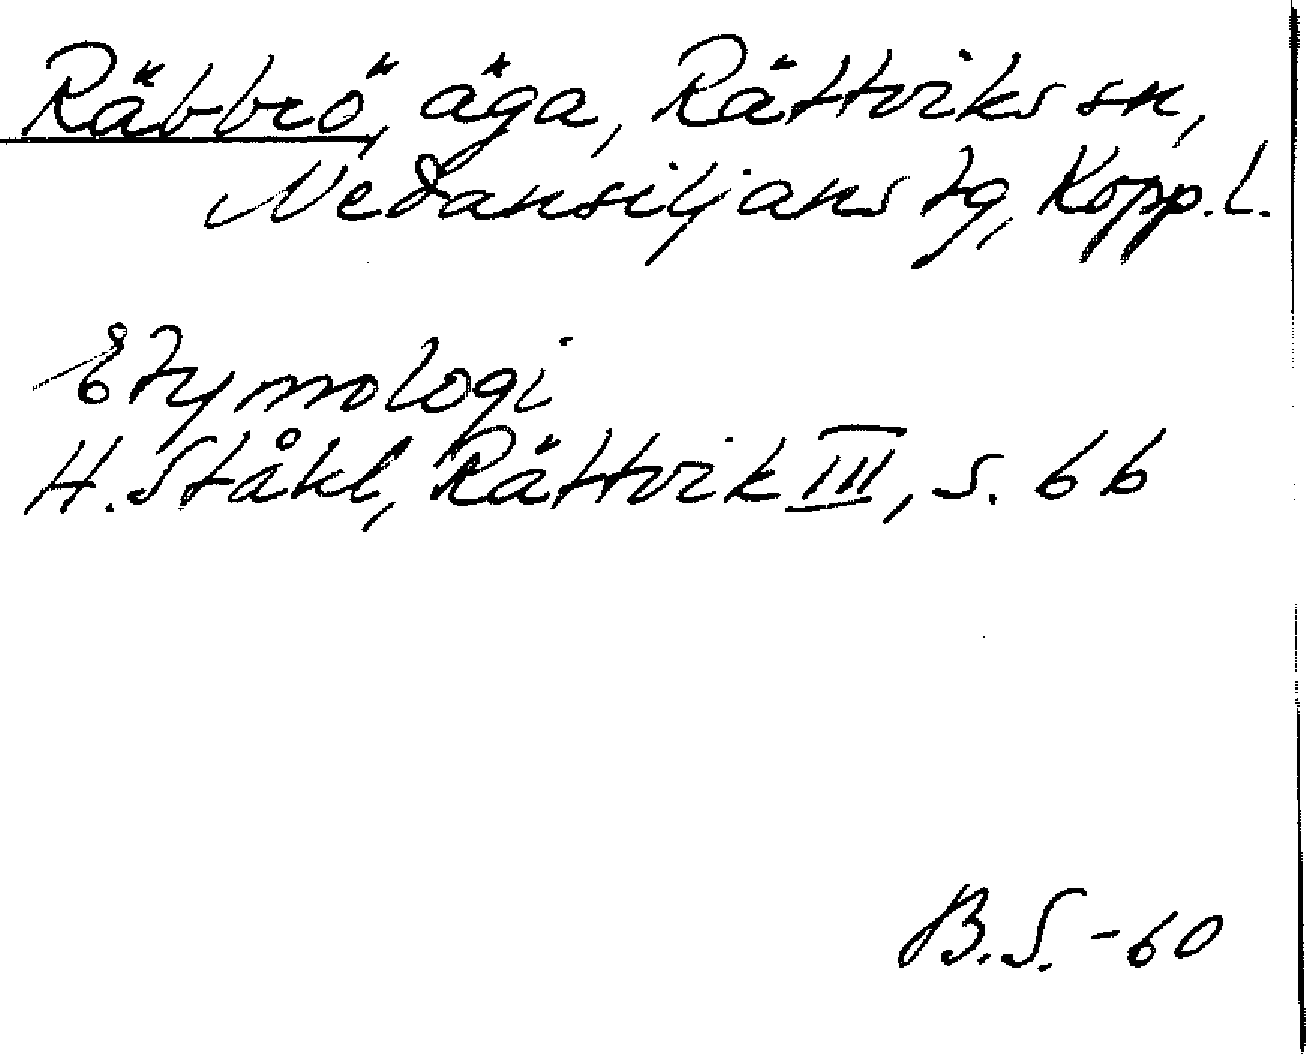 Räbbrö, äga, Rättviks sn,
Nedansiljans tg, Kopp. l.
Etymologi
H. Ståhl, Rättvik III, s. 66
B.S. -60